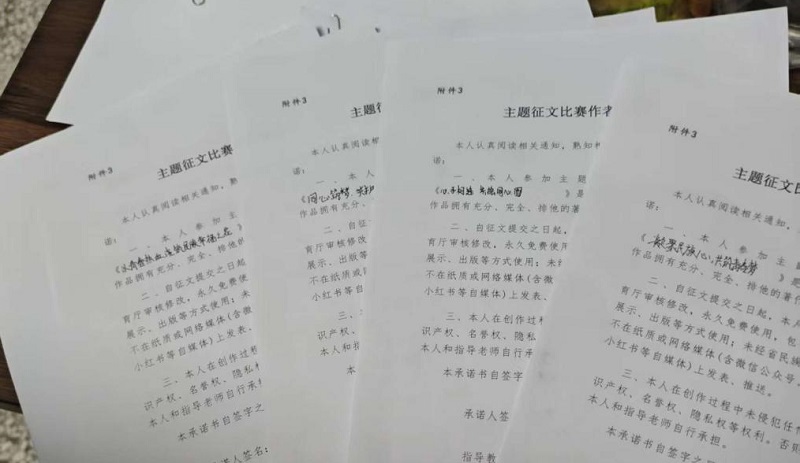 附件3
主题征文比赛
本人认真阅读相关通知,熟
诺:
一、本人参加主
作品拥有充分、完全、排他的
二、自征文提交之日起
育厅审核修改,永久免费使
展示、出版等方式使用;未
不在纸质或网络媒体(含微
小红书等自媒体)上发表、
三、本人在创作过程
识产权、名誉权、隐私
本人和指导老师自行承
本承诺书自签字之
承诺人签名:
附件3
主题征
本人认真阅读
诺:
一、本人参
作品拥有充分、
二、自征文
育厅审核修改,
展示、出版等方
不在纸质或网络
小红书等自媒体
三、本人在
识产权、名誉
本人和指导老
本承诺书
附件3
主题征文比赛作者
本人认真阅读相关通知,熟知
诺:
一、本人参加主题
》是
作品拥有充分、完全、排他的著
二、自征文提交之日起,
育厅审核修改,永久免费使用
展示、出版等方式使用;未
不在纸质或网络媒体(含微
小红书等自媒体)上发表、
三、本人在创作过程
识产权、名誉权、隐私
本人和指导老师自行承
本承诺书自签字
承诺人签
指导教
附件3
主题征文比
本人认真阅读相关通知,
诺:
一、本人参加主
》是
作品拥有充分、完全、排他的
二、自征文提交之日起,本
育厅审核修改,永久免费使用,包
展示、出版等方式使用;未经省民族
不在纸质或网络媒体(含微信公众号、
小红书等自媒体)上发表、推送。
三、本人在创作过程中未侵犯任
识产权、名誉权、隐私权等权利。否则
本人和指导老师自行承担。
本承诺书自签字之日